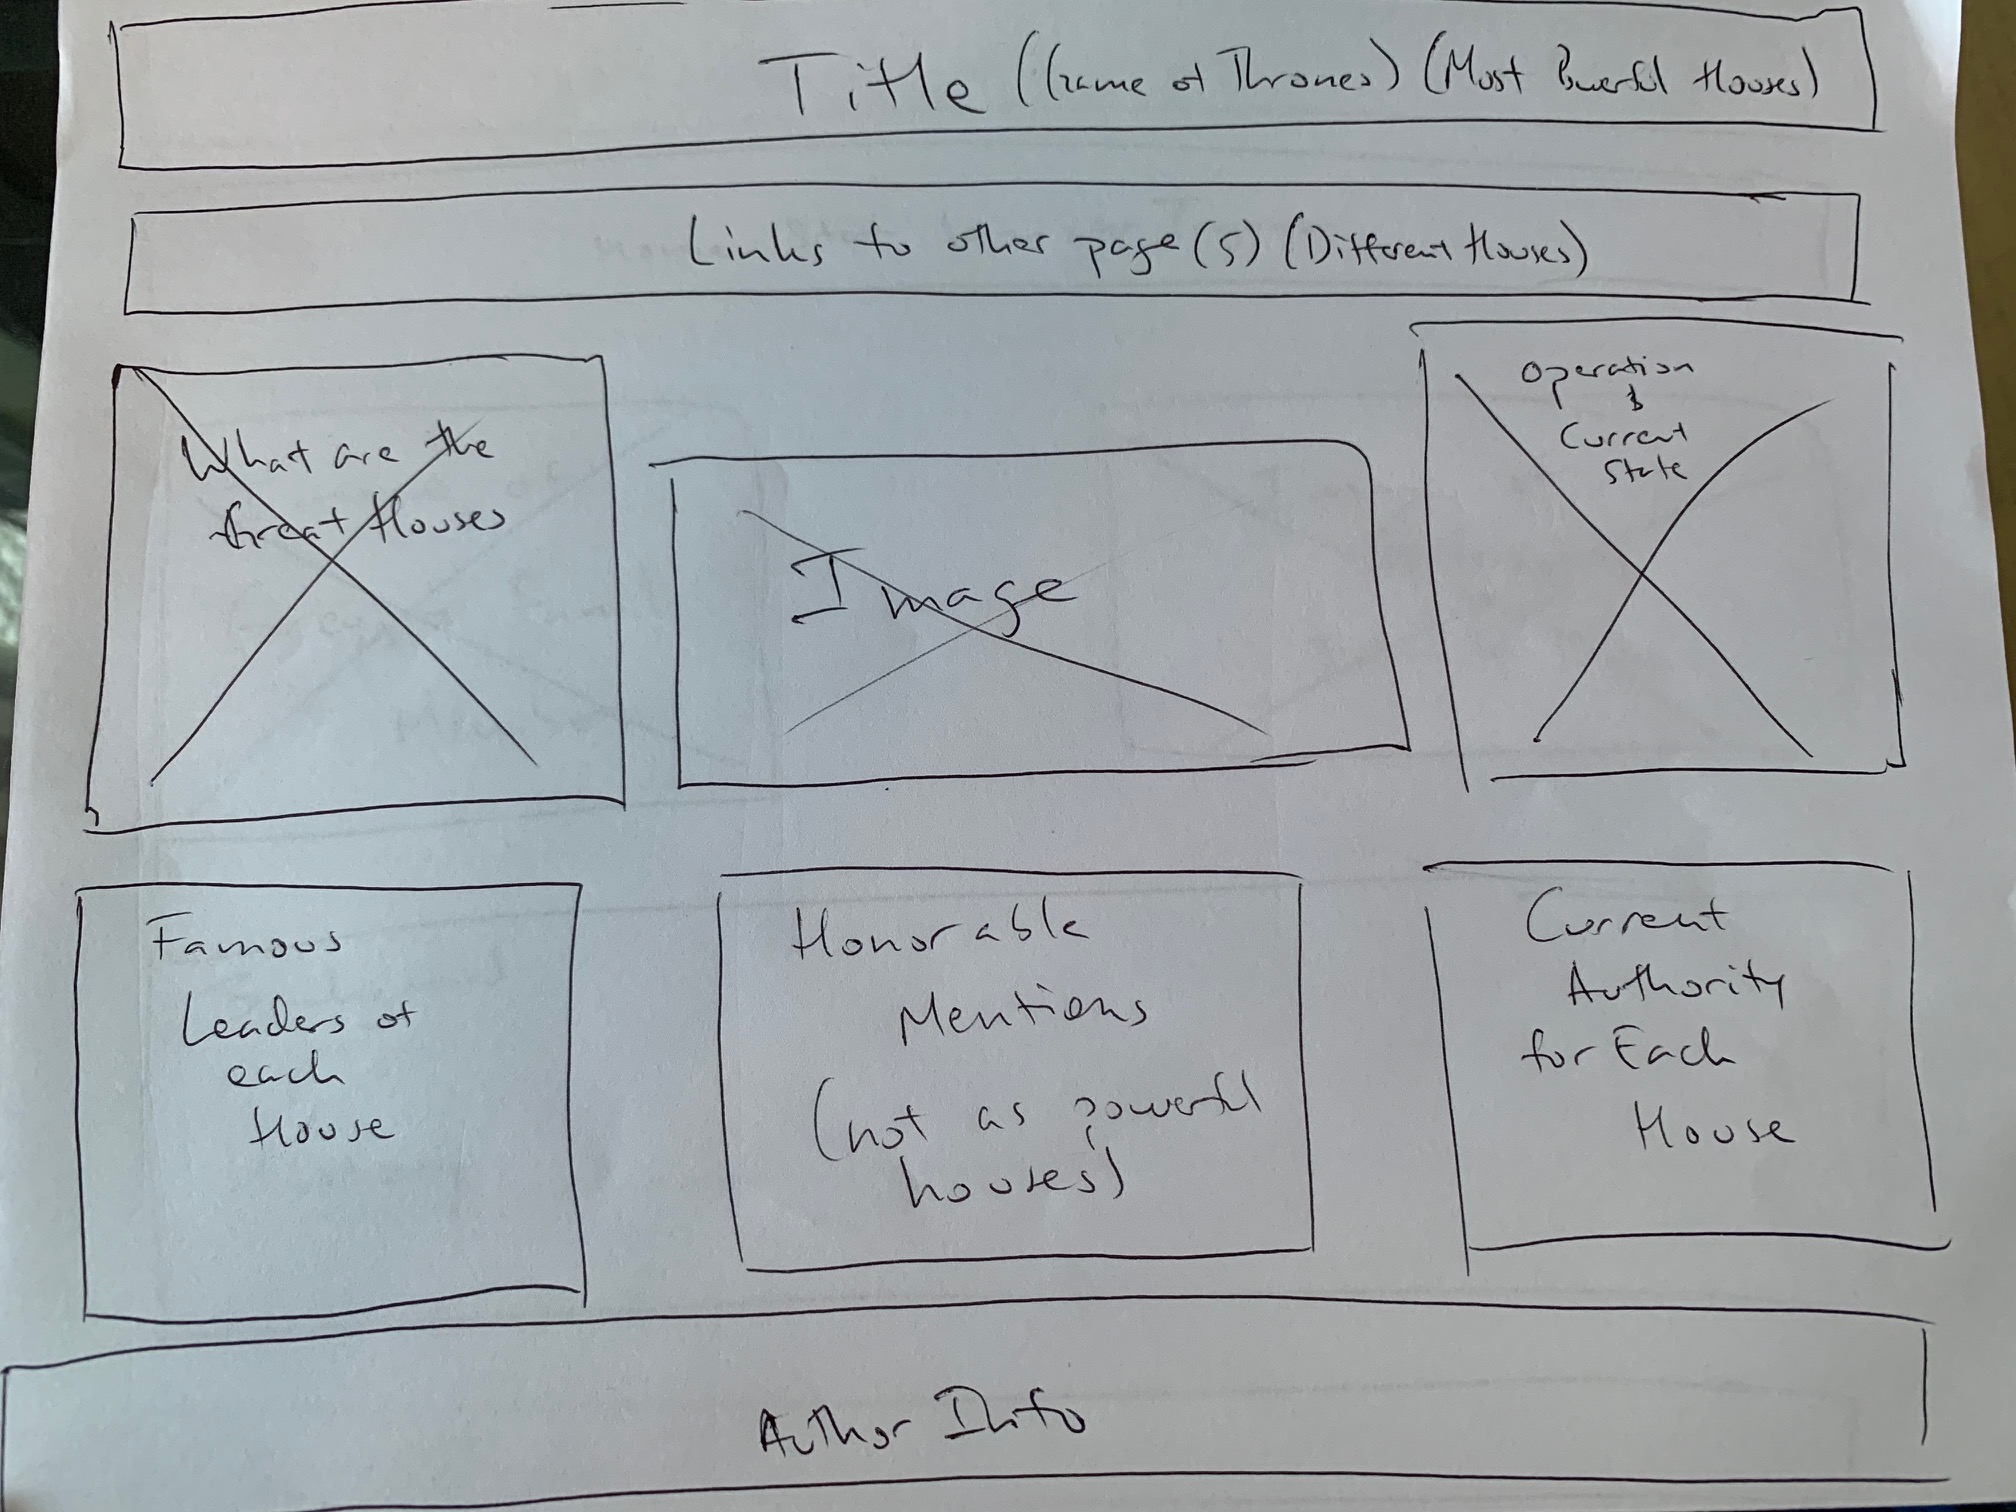 Title (Game of Thrones) (Most Powerful Houses)
Links to other page(s) (Different Houses)
What are the
Great Houses
Image
Operation
&
Current
State
Famous
Leaders of
each
House
Honorable
Mentions
(not as powerful
houses)
Current
Authority
for Each
House
Author Info